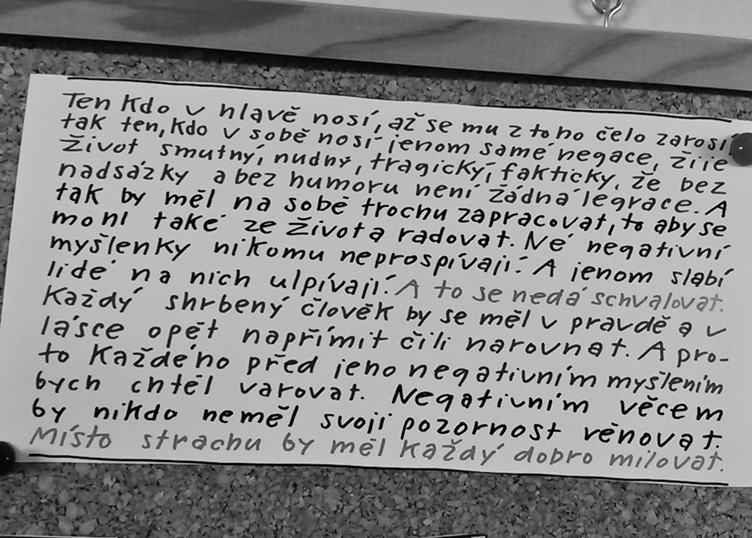 Ten Kdo v hlavě nosí, až se mu z toho čelo zarosí,
tak ten, Kdo v sobě nosí jenom samé negace, žije
život smutný, nudný, tragický, fakticky, že bez
nadsázky a bez humoru není žádná legrace. A
tak by měl na sobě trochu zapracovat, to aby se
mohl také ze života radovat. Né negativní
myšlenky nikomu neprospívají. A jenom slabí
lidé na nich ulpívají. A to se nedá schvalovat.
Každý shrbený člověk by se měl v pravdě a v
lásce opět napřímit čili narovnat. A pro-
to Každého před jeho negativním myšlením
bych chtěl varovat. Negativním věcem
by nikdo neměl svoji pozornost věnovat.
Místo strachu by měl Každý dobro milovat.